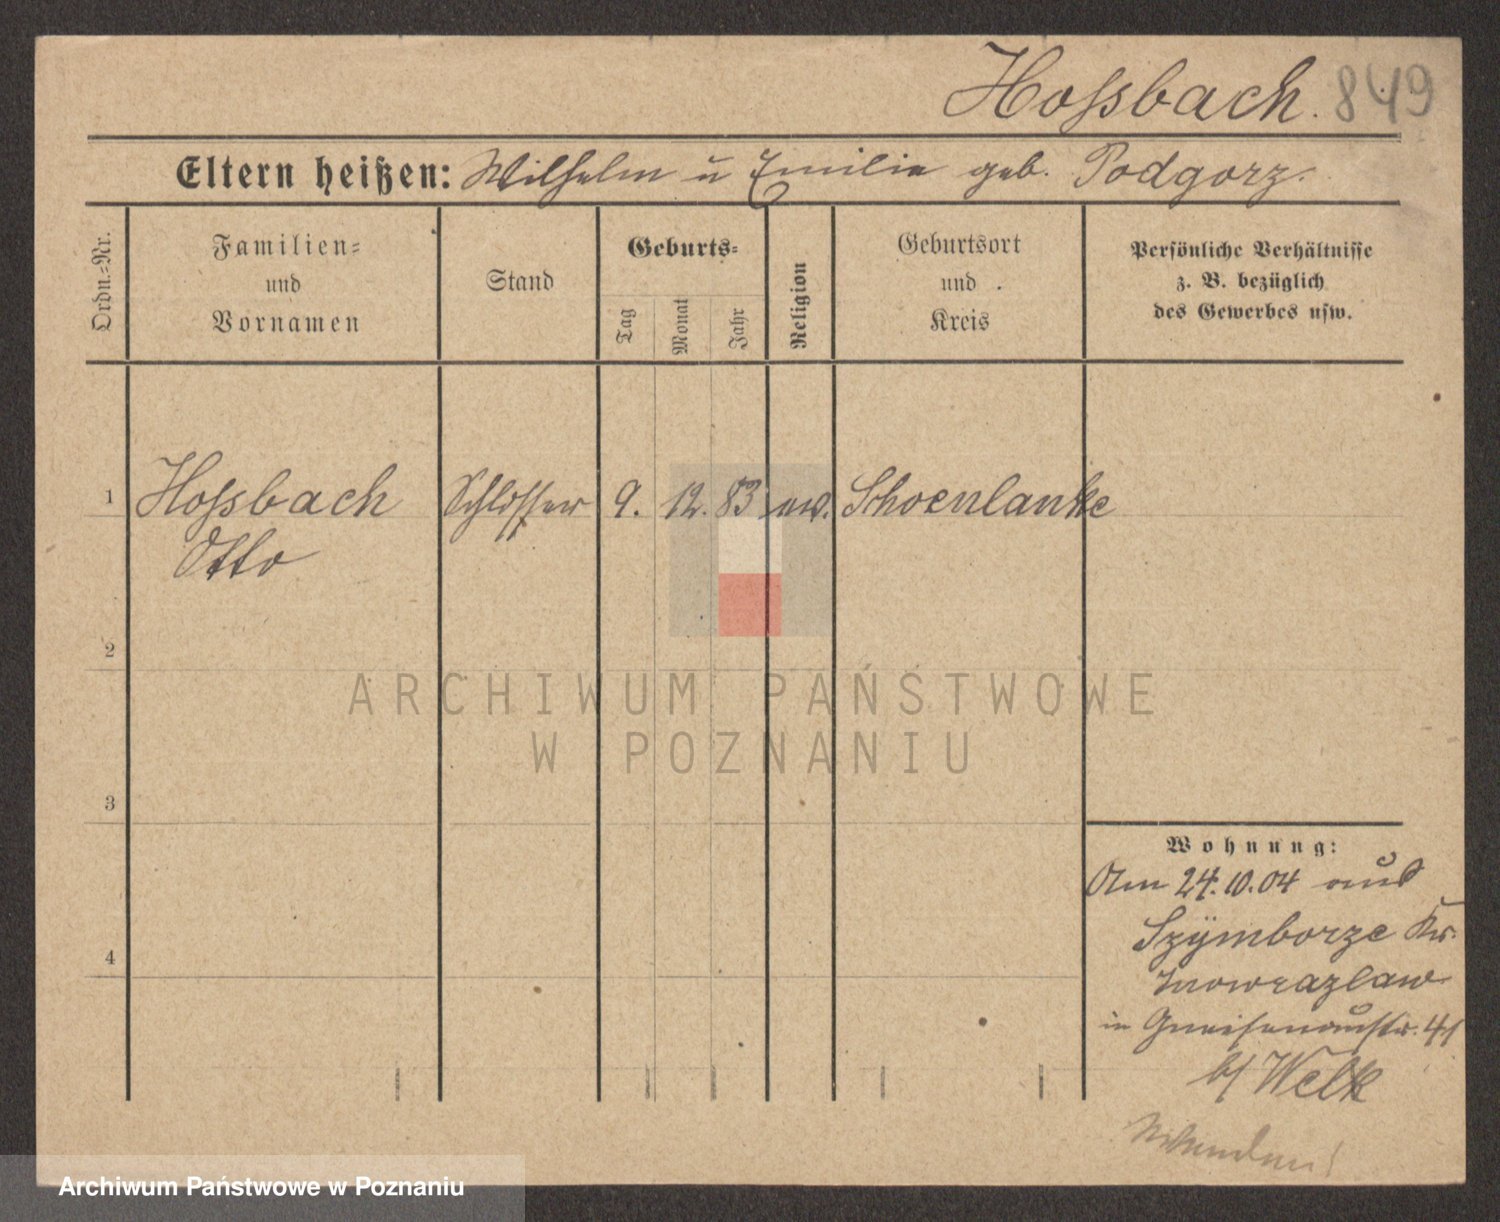 Hoßbach. 849
Eltern heißen: Wilhelm u Emilie geb. Podgorz.
Ordn.=Nr.
Familien=
und
Vornamen
Stand
Geburts=
Tag
Monat
Jahr
Religion
Geburtsort
und
Kreis
Persönliche Verhältnisse
z. B. bezüglich
des Gewerbes usw.
1 Hoßbach Schlosser 9. 12. 83 ew. Schoenlanke
Otto
2
ARCHIWUM PAŃSTWOWE
W POZNANIU
3
Wohnung:
Am 24.10.04 aus
Szÿmborze Kr.
Inowrazlaw
in Gneisenaustr. 41
b/ Welk
4
Wenden!
Archiwum Państwowe w Poznaniu